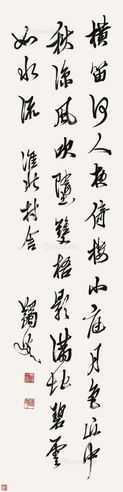 横笛何人夜倚楼小庭月色近中
秋凉风吹堕双梧影满地碧云
如水流 淮北村舍